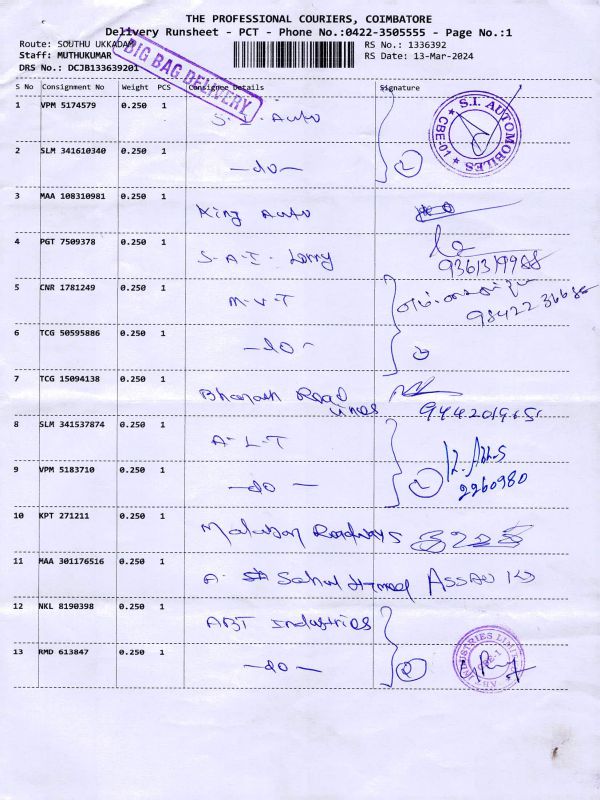 THE PROFESSIONAL COURIERS, COIMBATORE
Delivery Runsheet - PCT - Phone No.:0422-3505555 - Page No.:1
Route: SOUTHU UKKADAM
RS No.: 1336392
Staff: MUTHUKUMAR
RS Date: 13-Mar-2024
DRS No.: DCJB133639201
BIG BAG DELIVERY
S No Consignment No Weight PCS Consignee Details Signature
1 VPM 5174579 0.250 1 S.I. Auto
S.I. AUTOMOBILES CBE-01
2 SLM 341610340 0.250 1 -do- 2
3 MAA 108310981 0.250 1 King Auto
4 PGT 7509378 0.250 1 S-A-I- Lorry
5 CNR 1781249 0.250 1 M-V-T
6 TCG 50595886 0.250 1 -do-
7 TCG 15094138 0.250 1 Bharath Road
Lines
8 SLM 341537874 0.250 1 A-L-T
9 VPM 5183710 0.250 1 -do- 2 2260980
10 KPT 271211 0.250 1 Malabar Roadways
11 MAA 301176516 0.250 1 A.
12 NKL 8190398 0.250 1 ABT Industries
13 RMD 613847 0.250 1 -do- 2
ABT INDUSTRIES LIMITED CBE-1